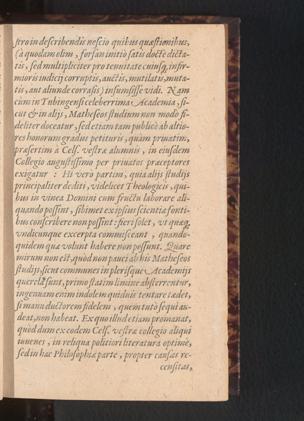 stro in describendis nescio quibus quæstionibus,
(a quodam olim, forsan initio satis docte dicta-
tis, sed multipliciter pro tenuitate cuiusq; infir-
mioris iudicij corruptis, auctis, mutilatis, muta-
tis, aut aliunde corrasis) insumsisse vidi. Nam
cum in Tubingensi celeberrima Academia, si-
cut & in alijs, Matheseos studium non modo fi-
deliter doceatur, sed etiam tam publicè ab altio-
res honorum gradus petituris, quàm priuatim,
præsertim à Cels. vestræ alumnis, in eiusdem
Collegio augustissimo per priuatos præceptores
exigatur: Hi verò partim, quia alijs studijs
principaliter dediti, videlicet Theologicis, qui-
bus in vinea Domini cum fructu laborare ali-
quando possint, sibimet ex ipsius scientiæ fonti-
bus conscribere non possint: fieri solet, vt quæq;
vndicunque excerpta commisceant, quando-
quidem quæ volunt habere non possunt. Quare
mirum non est, quòd non pauci ab his Matheseos
studijs, sicut communes in plerisque Academijs
querelæ sunt, primo statim limine absterrentur,
ingenuam enim indolem quiduis tentare tædet,
si manuductorem fidelem, quem tutò sequi au-
deat, non habeat. Ex quo illud etiam promanat,
quòd dum ex eodem Cels. vestræ collegio aliqui
iuuenes, in reliqua politiori literatura optimè,
sed in hac Philosophiæ parte, propter causas re-
censitas,